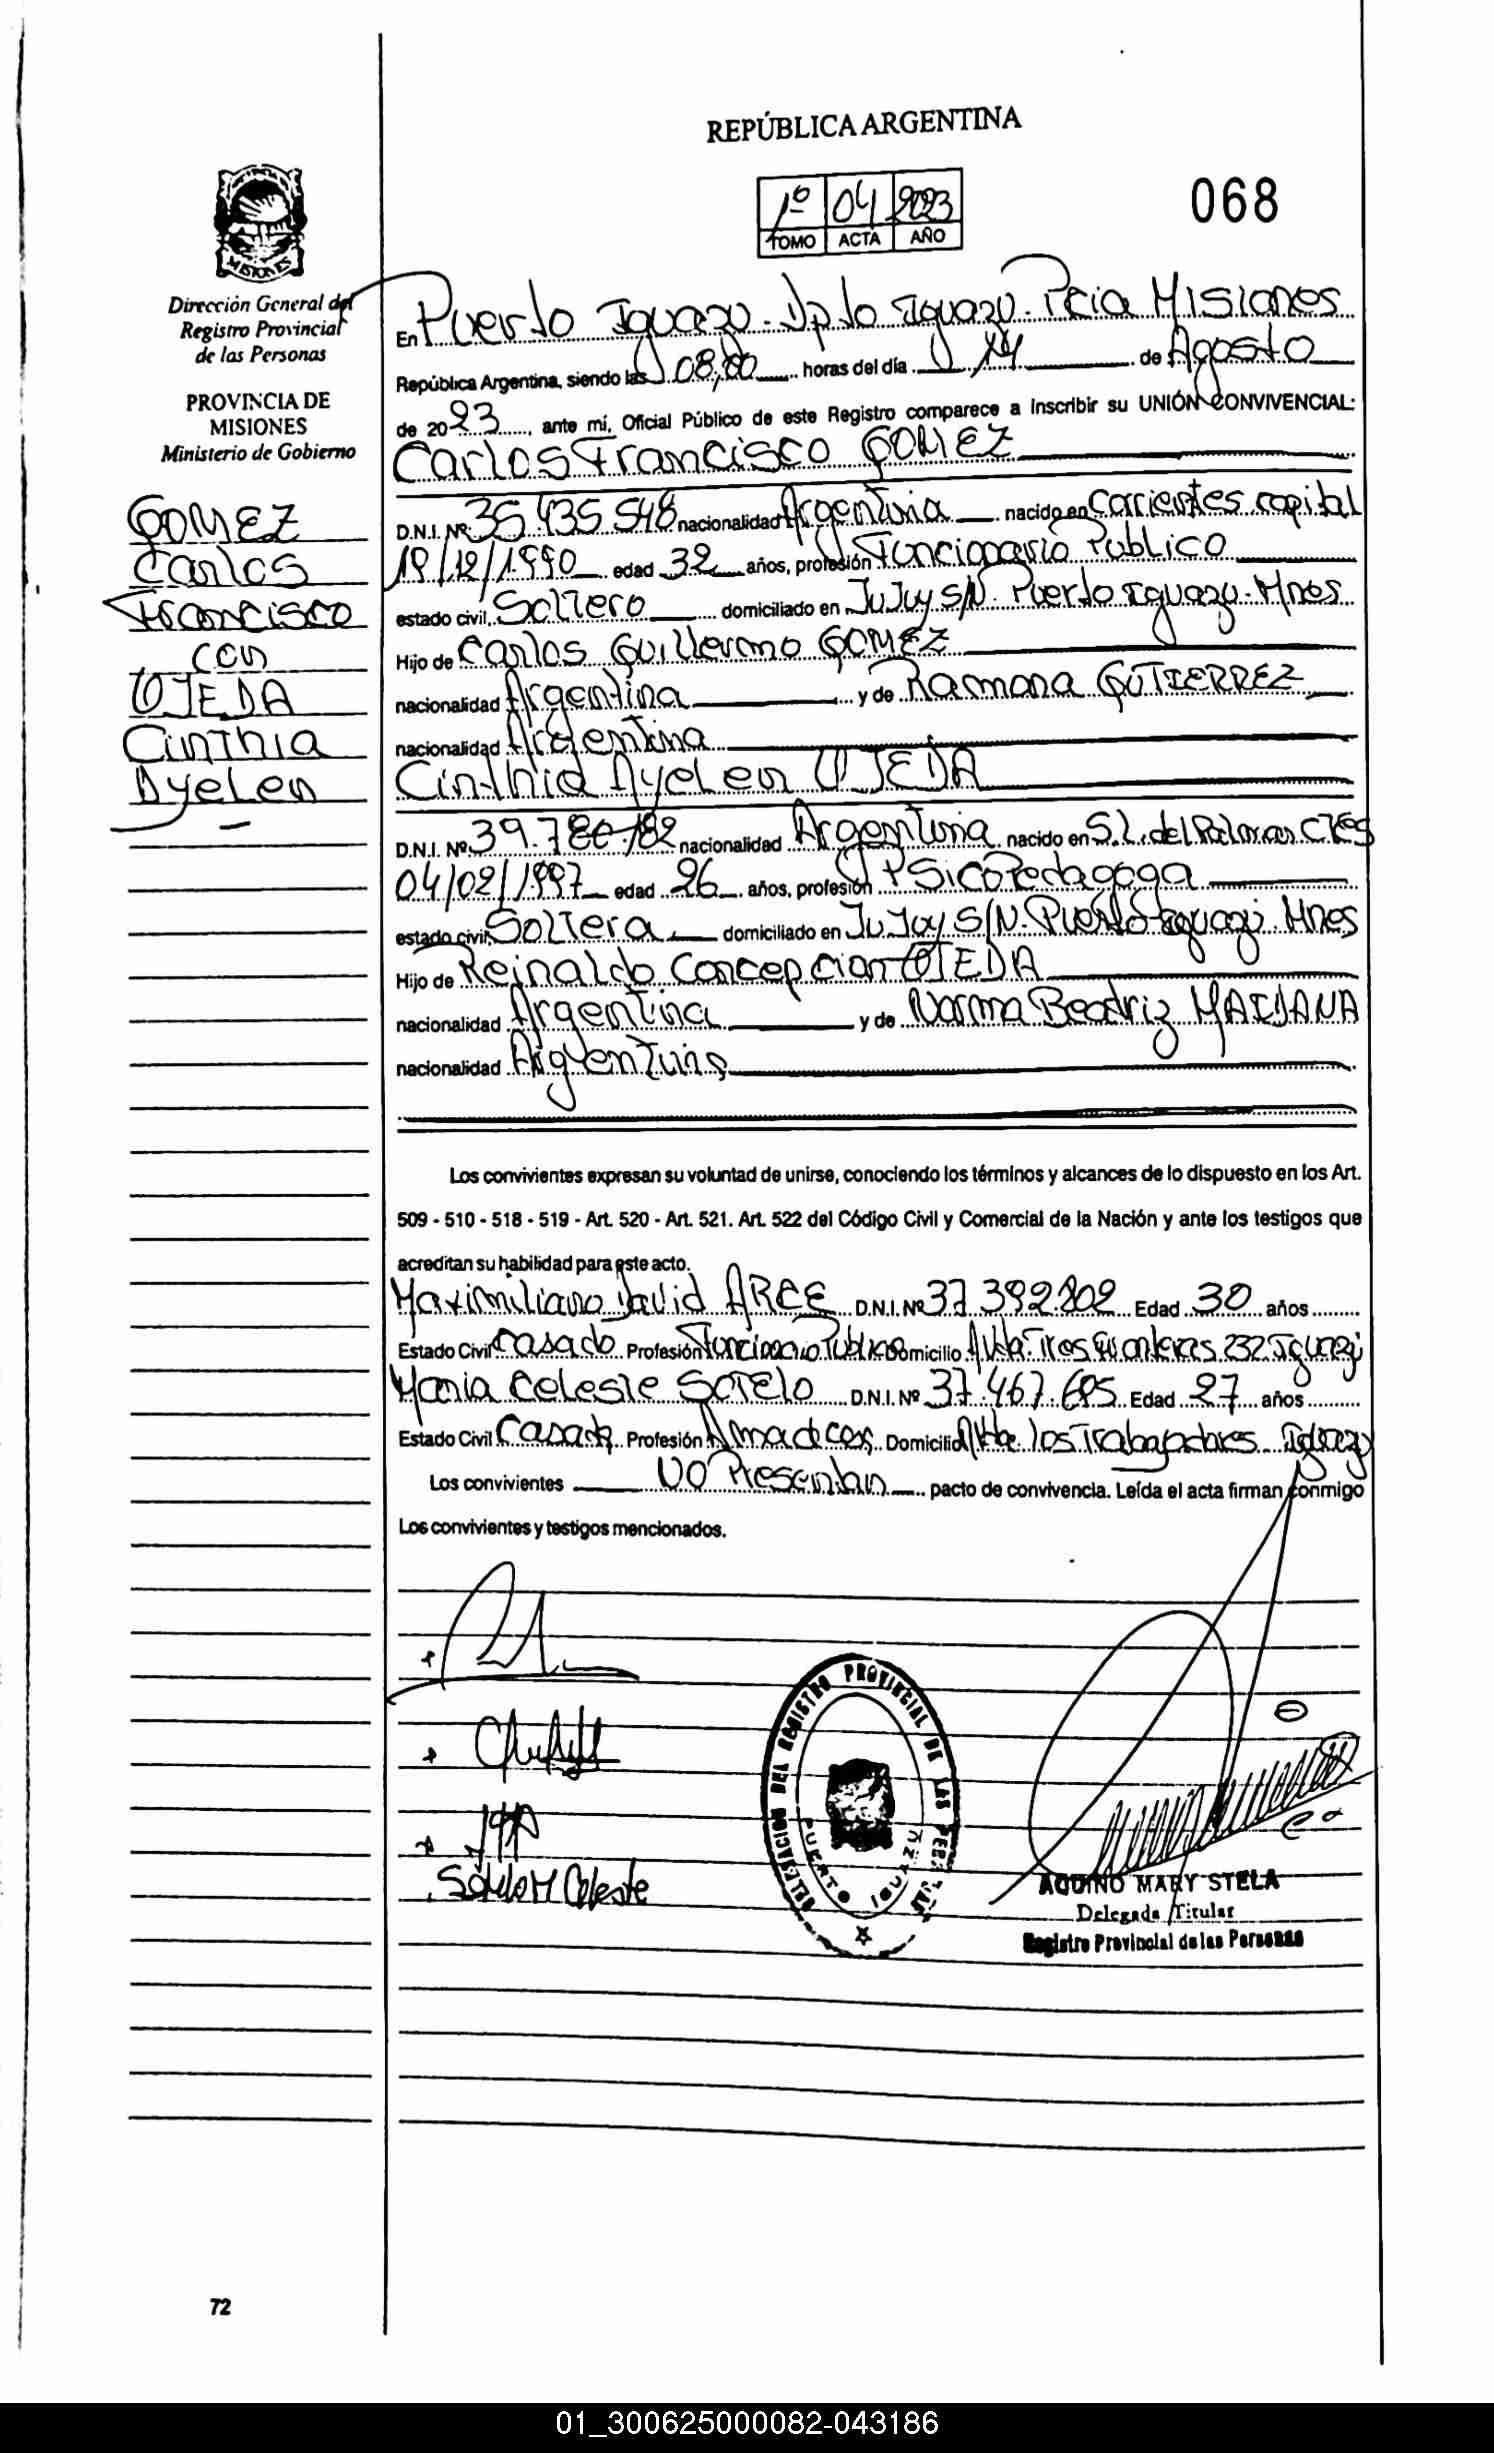 REPÚBLICA ARGENTINA
1º 04 2023
TOMO ACTA AÑO
068
MISIONES
Dirección General del
Registro Provincial
de las Personas
PROVINCIA DE
MISIONES
Ministerio de Gobierno
GOMEZ
Carlos
Francisco
con
OJEDA
Cinthia
Ayelen
En Puerto Iguazu. Dpto Iguazu. Pcia Misiones
República Argentina, siendo las 08,00 horas del día 14 de Agosto
de 2023, ante mí, Oficial Público de este Registro comparece a inscribir su UNIÓN CONVIVENCIAL:
Carlos Francisco GOMEZ
D.N.I. Nº 35.435.548 nacionalidad Argentina nacido en Corrientes capital
19/12/1990 edad 32 años, profesión Funcionario Publico
estado civil, Soltero domiciliado en JuJuy S/N. Puerto Iguazu. Mnes
Hijo de Carlos Guillermo GOMEZ
nacionalidad Argentina y de Ramona GUTIERREZ
nacionalidad Argentina
Cinthia Ayelen OJEDA
D.N.I. Nº 39.780.182 nacionalidad Argentina nacido en S.L. del Palmar. Ctes
04/02/1997 edad 26 años, profesión PSicoPedagoga
estado civil, Soltera domiciliado en JuJuy S/N. Puerto Iguazu. Mnes
Hijo de Reinaldo Concepcion OJEDA
nacionalidad Argentina y de Norma Beatriz MAIDANA
nacionalidad Argentina
Los convivientes expresan su voluntad de unirse, conociendo los términos y alcances de lo dispuesto en los Art.
509 - 510 - 518 - 519 - Art. 520 - Art. 521. Art. 522 del Código Civil y Comercial de la Nación y ante los testigos que
acreditan su habilidad para este acto.
Maximiliano David ARCE D.N.I. Nº 37.392.802 Edad 30 años
Estado Civil Casado Profesión Funcionario Publico Domicilio Avda. Tres Fronteras 232 Iguazu
Maria Celeste SOTELO D.N.I. Nº 37.467.685 Edad 27 años
Estado Civil Casada Profesión Ama de casa Domicilio Avda. los Trabajadores Iguazu
Los convivientes NO Presentan pacto de convivencia. Leída el acta firman conmigo
Los convivientes y testigos mencionados.
Sotelo M Celeste
DELEGACION DEL REGISTRO PROVINCIAL DE LAS PERSONAS
PUERTO IGUAZU
AQUINO MARY STELA
Delegada Titular
Registro Provincial de las Personas
72
01_300625000082-043186